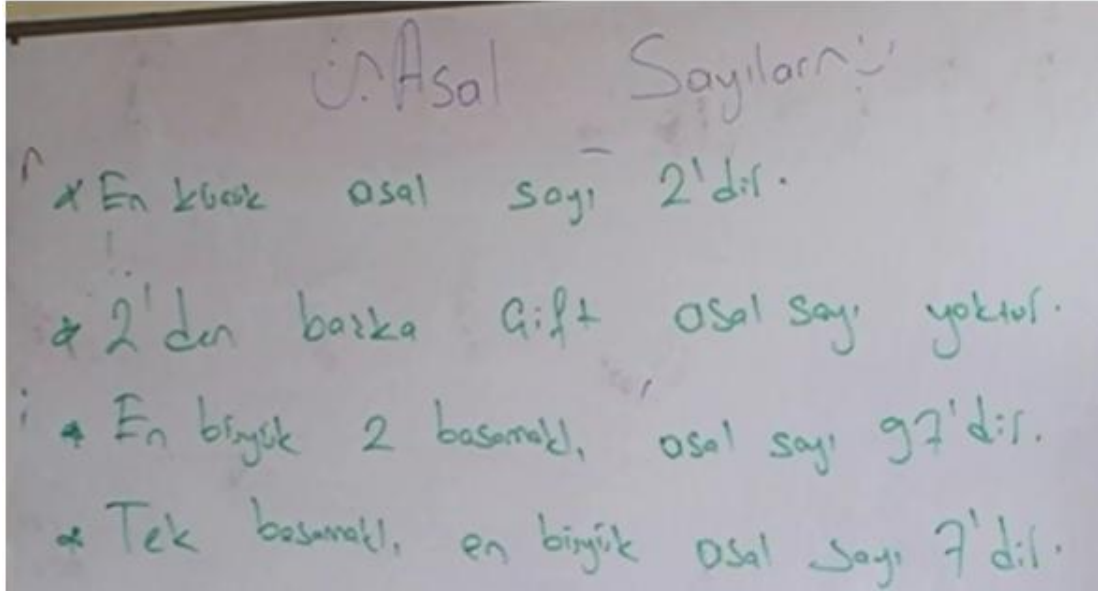 Asal Sayılar
* En küçük asal sayı 2'dir.
* 2'den başka çift asal sayı yoktur.
* En büyük 2 basamaklı asal sayı 97'dir.
* Tek basamaklı en büyük asal sayı 7'dir.